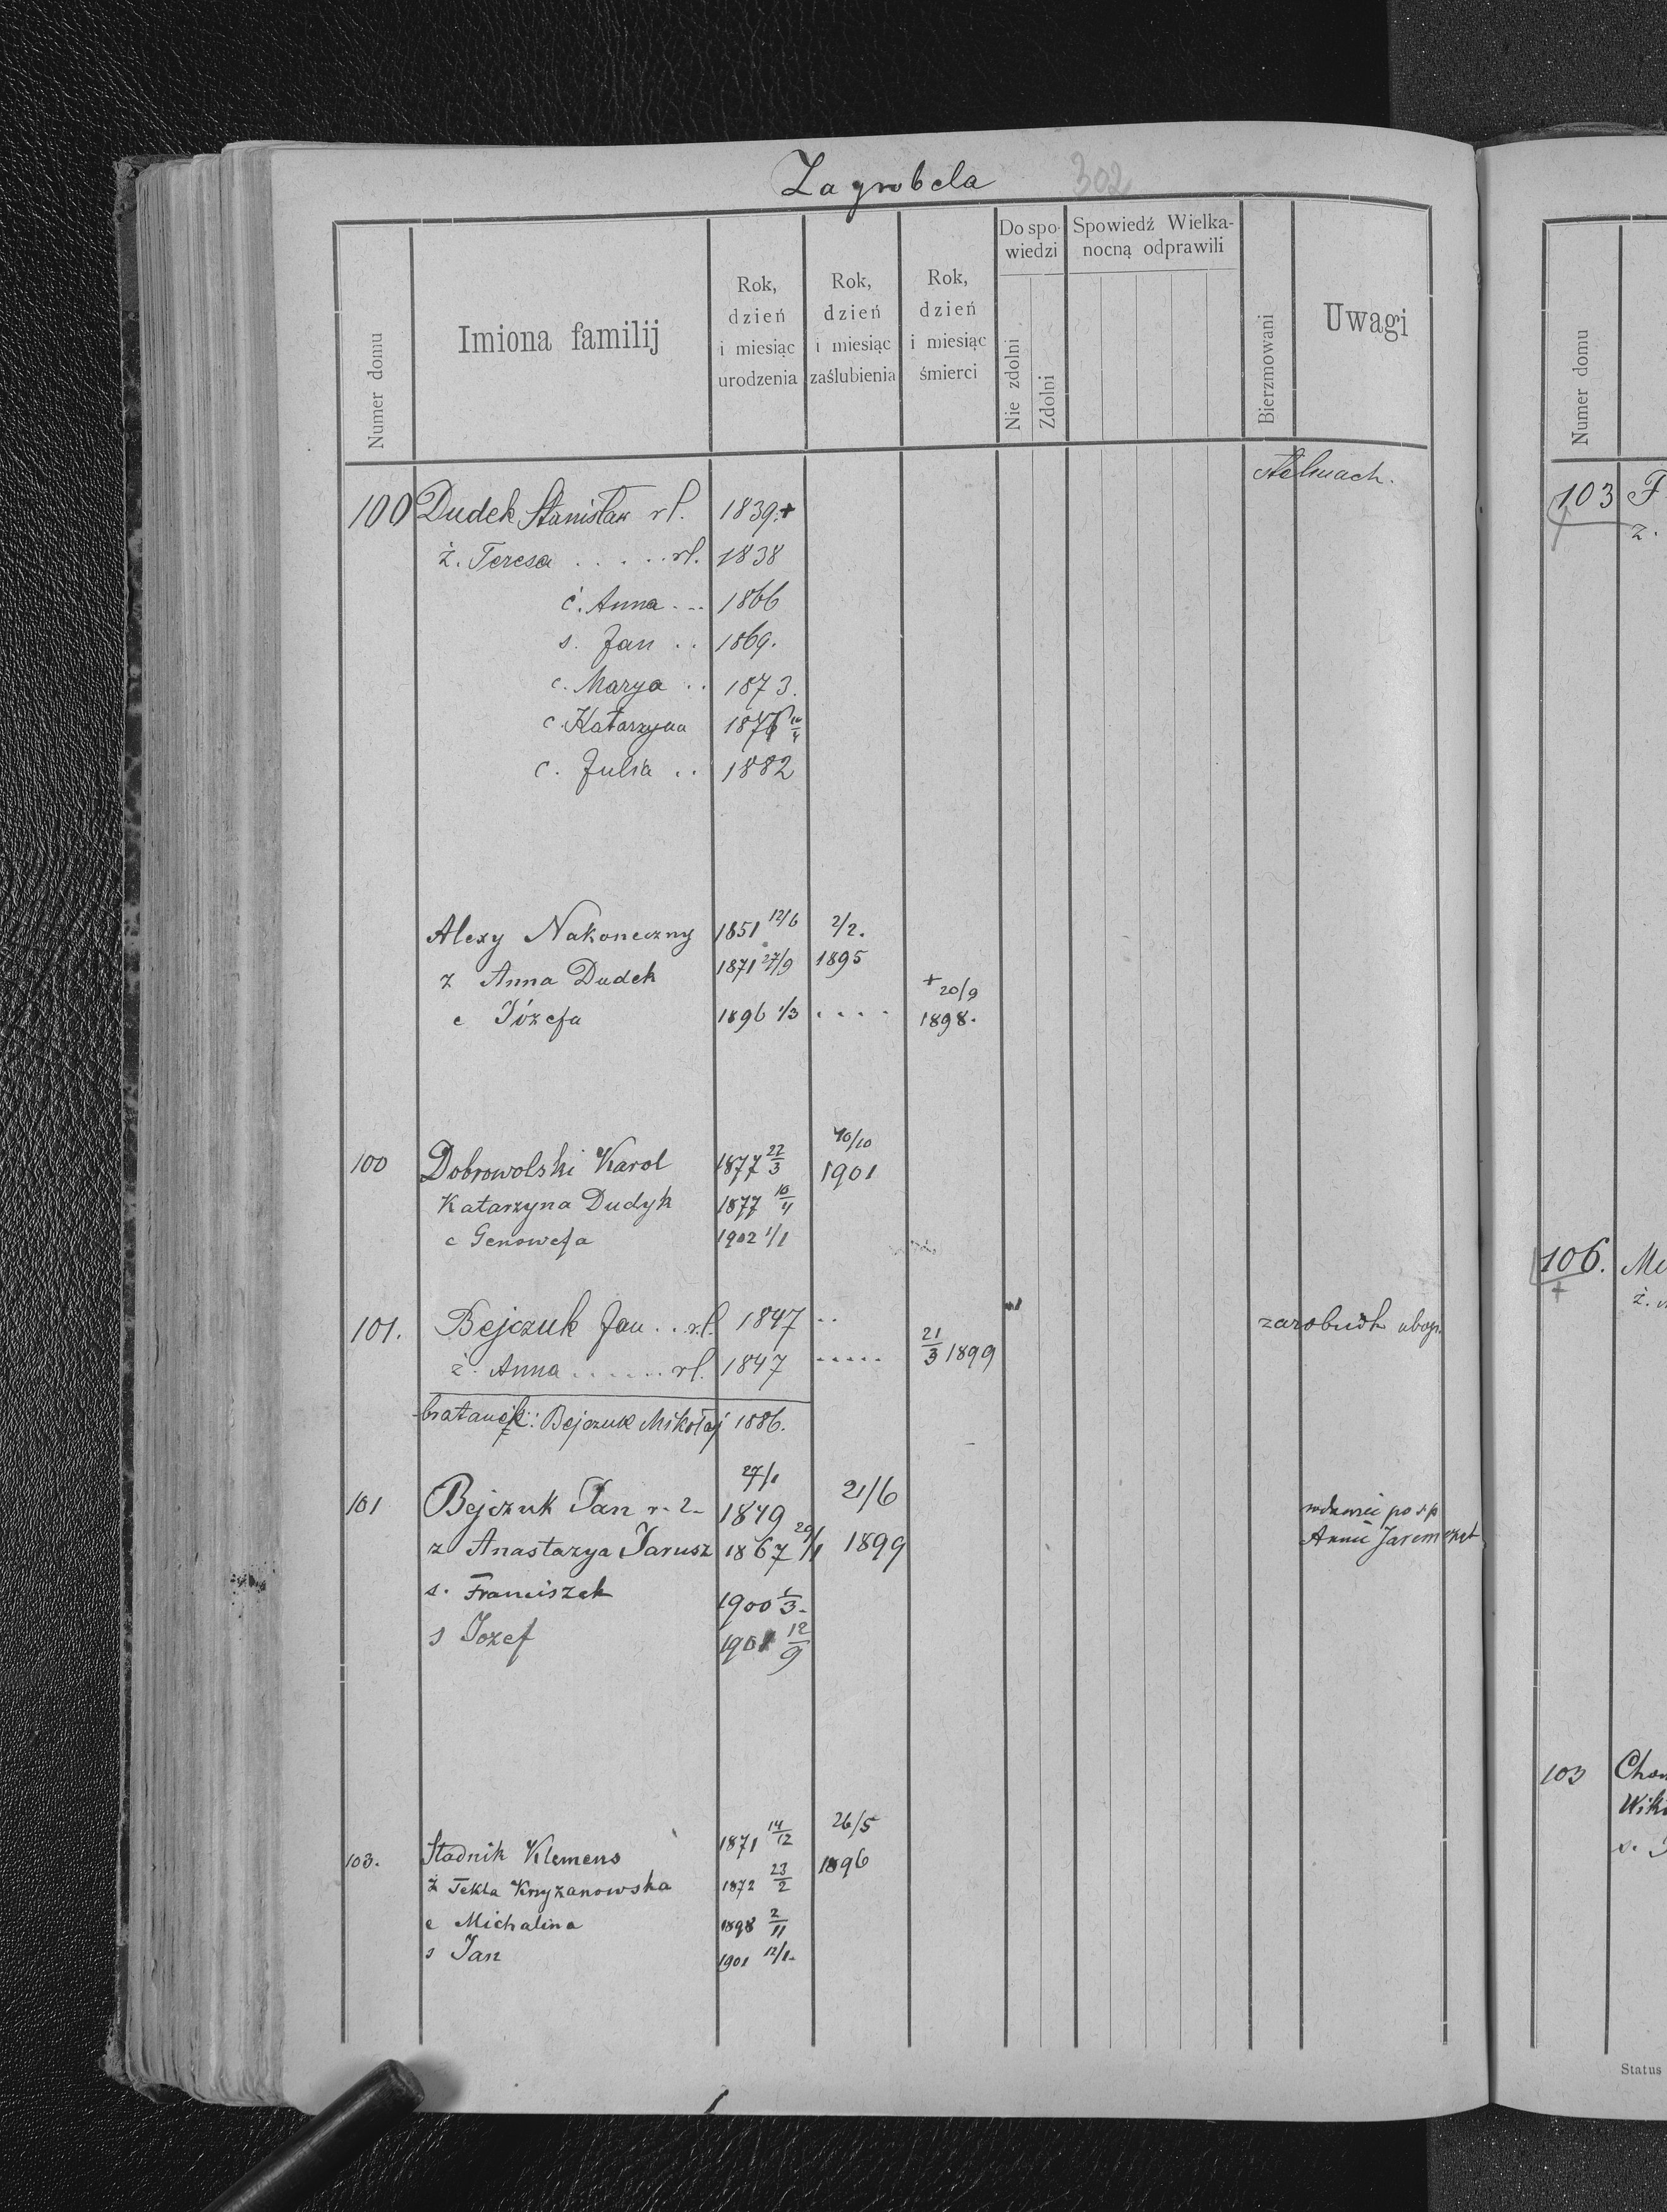 Zagrobela 302
Numer domu
Imiona familij
Rok, dzień i miesiąc urodzenia
Rok, dzień i miesiąc zaślubienia
Rok, dzień i miesiąc śmierci
Do spowiedzi
Nie zdolni
Zdolni
Spowiedź Wielkanocną odprawili
Bierzmowani
Uwagi
Numer domu
stelmach.
100 Dudek Stanisław rł. 1839.+
ż. Teresa . . . . . rł. 1838
ć. Anna . . . 1866
s. Jan . . 1869.
c. Marya . . 1873.
c. Katarzyna 1876 10/4
c. Julia . . 1882
Alexy Nakoneczny 1851 12/6 2/2.
ż Anna Dudek 1871 27/9 1895
c Józefa 1896 1/3 . . . . +20/9 1898.
100 Dobrowolski Karol 1877 22/3 10/10 1901
Katarzyna Dudyk 1877 10/4
c Genowefa 1902 1/1
101. Bejczuk Jan . . rł. 1847 . .
zarobnik ubogi
ż. Anna . . . . . . rł. 1847 . . . . . 21/3 1899
bratanek: Bejczuk Mikołaj 1886.
101 Bejczuk Jan r. 2. 27/1 1849 21/6
wdowiec po ś.p.
ż Anastazya Jarusz 1867 29/1 1899
Annie
s. Franciszek 1900 1/3.
s Jozef 1901 12/9
103. Stadnik Klemens 1871 14/12 26/5
ż Tekla Kryżanowska 1872 23/2 1896
c Michalina 1898 2/11
s Jan 1901 12/1.
103 F
ż.
106.
+
ż.
103
s. J
Status